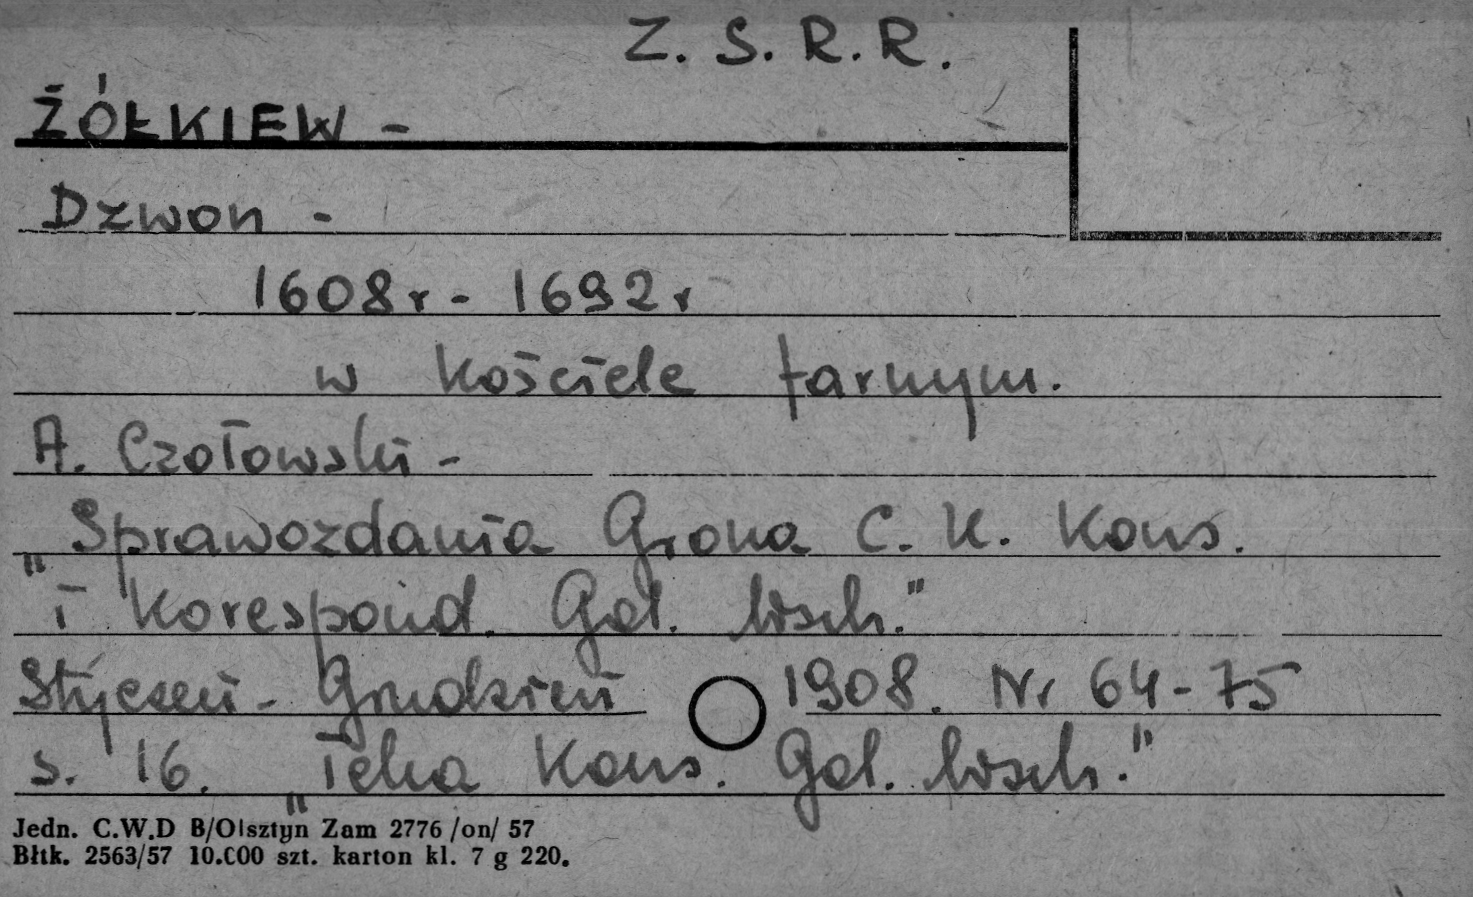 Z. S. R. R.
ŻÓŁKIEW -
Dzwon -
1608r - 1692r
w kościele farnym.
A. Czołowski -
„Sprawozdania Grona C. K. Kons.
i Korespond. Gal. wsch."
Styczeń - Grudzień 1908. Nr 64-75
s. 16. „Teka Kons. Gal. wsch."
Jedn. C.W.D B/Olsztyn Zam 2776 /on/ 57
Błtk. 2563/57 10.000 szt. karton kl. 7 g 220.